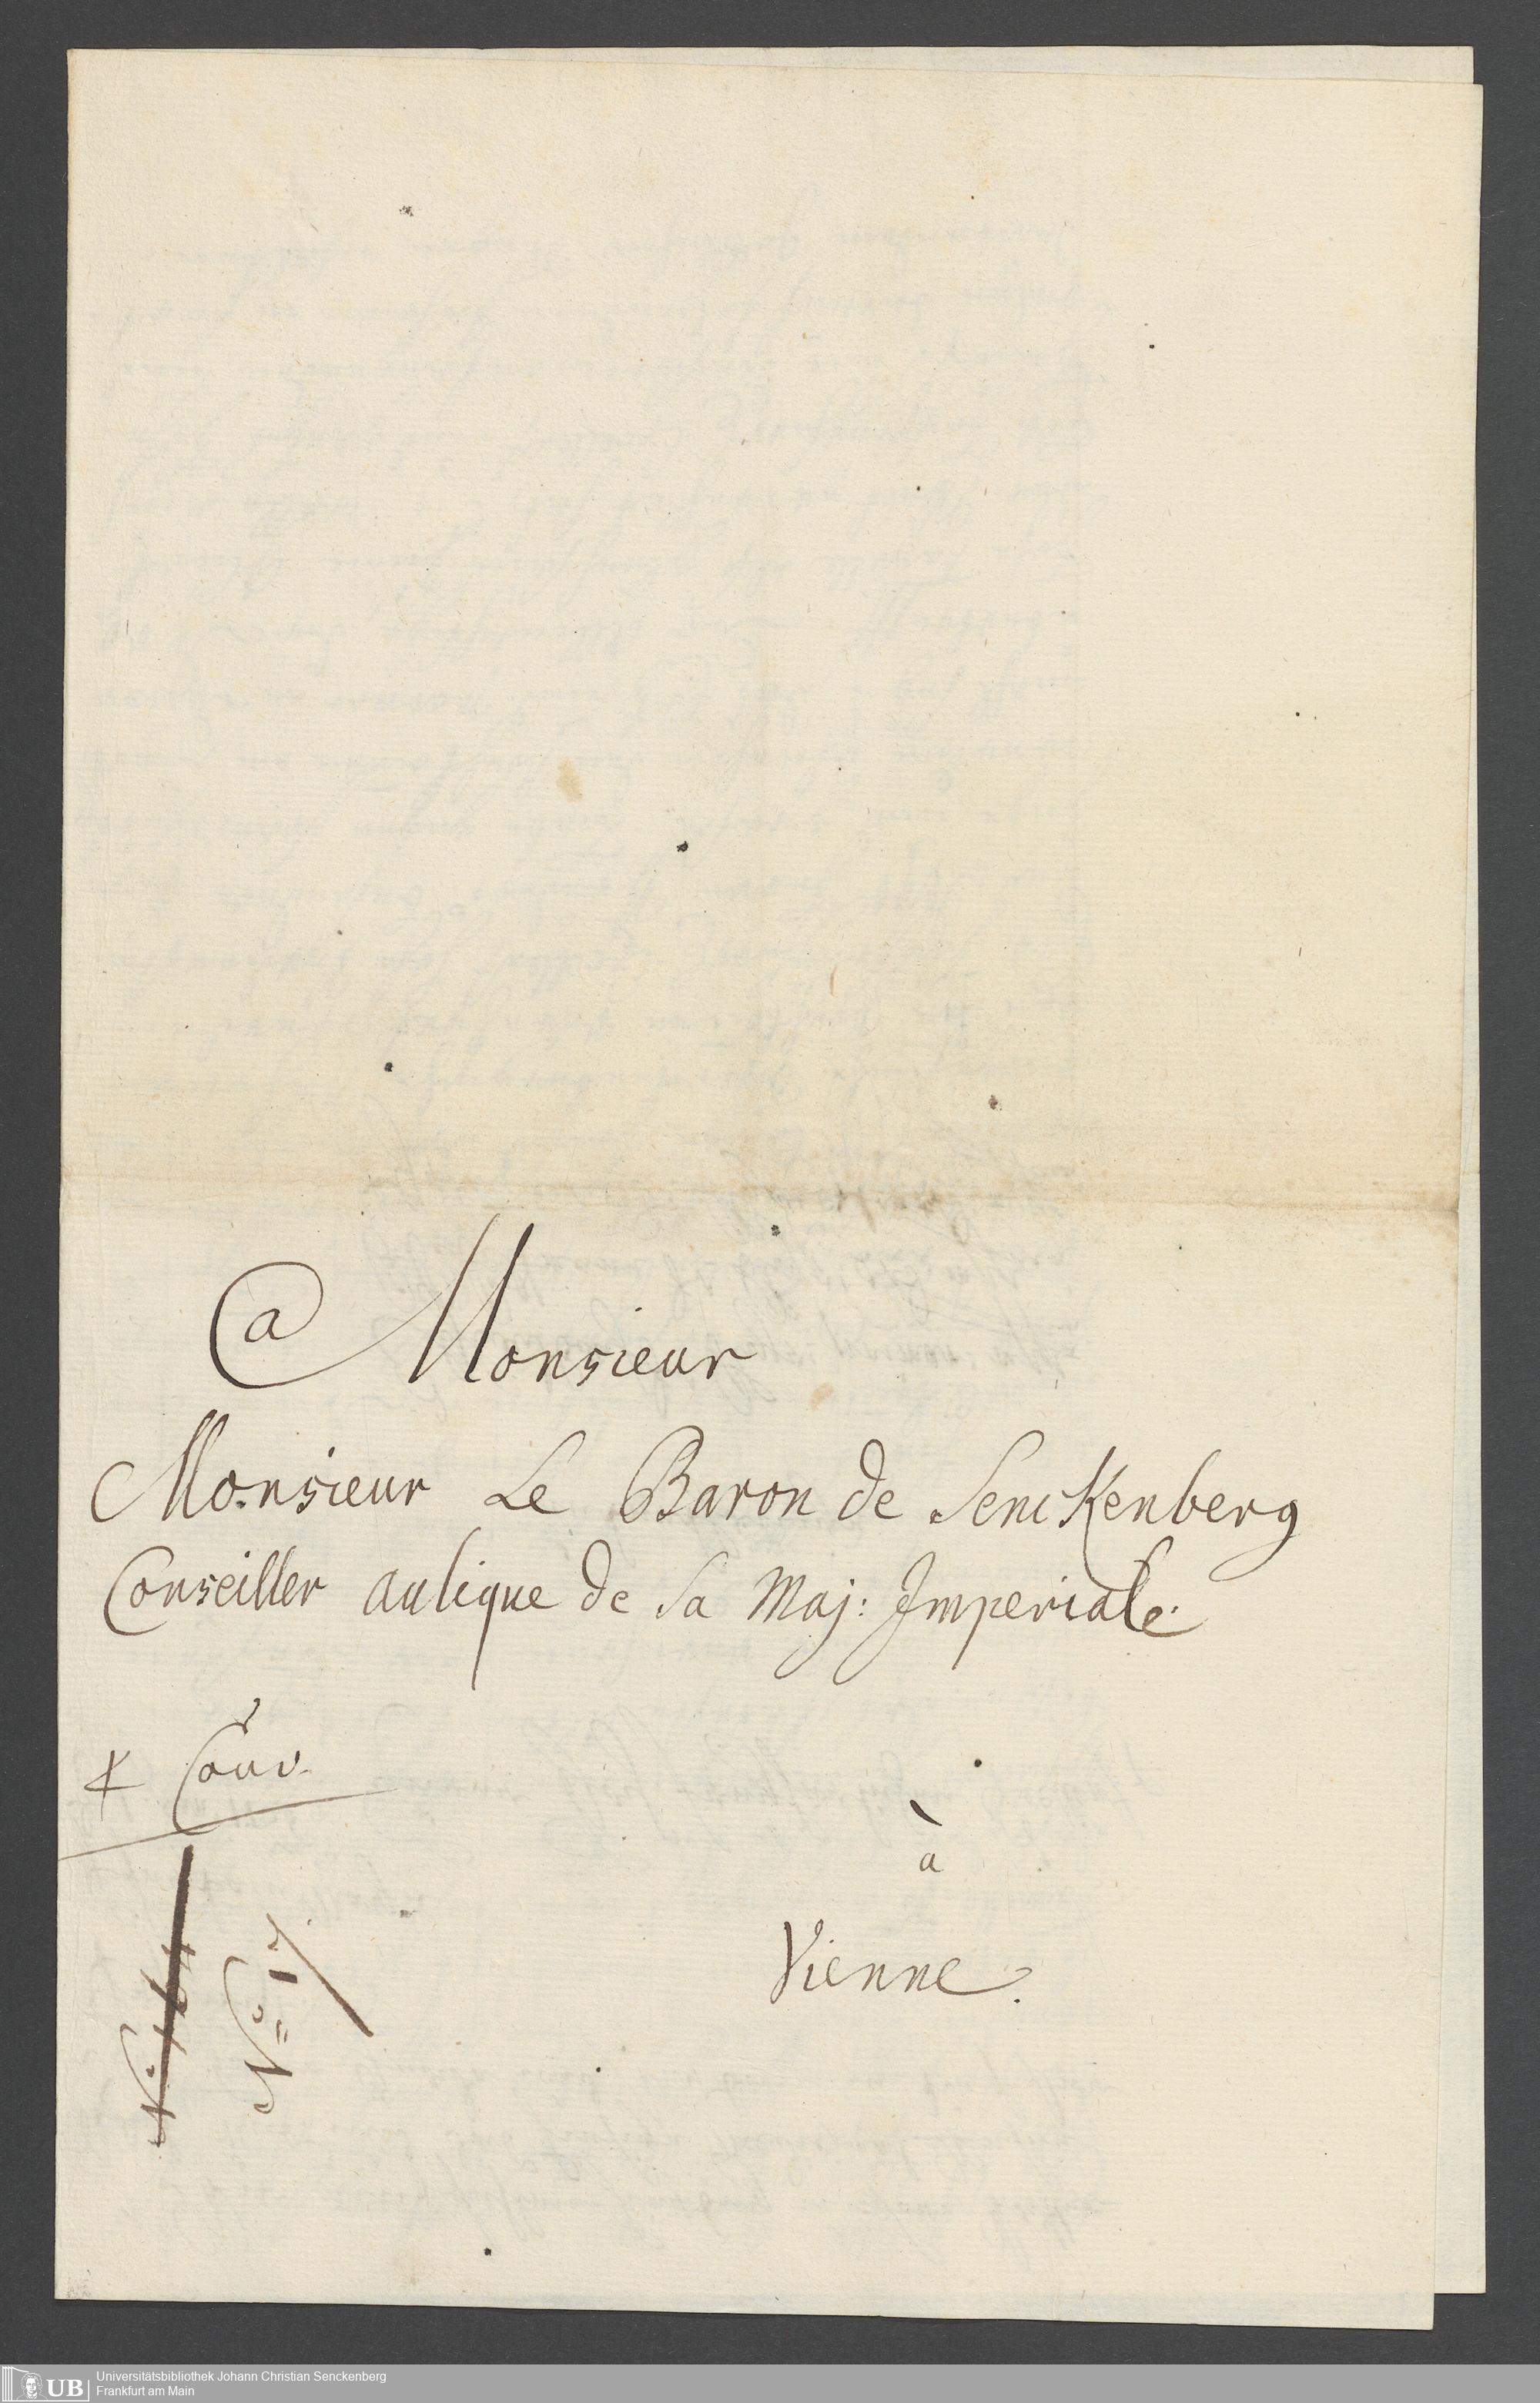 a Monsieur
Monsieur Le Baron de Senckenberg
Conseiller aulique de Sa Maj: Imperiale.
Couv.
à
Vienne.
No 17.
Universitätsbibliothek Johann Christian Senckenberg
Frankfurt am Main
UB